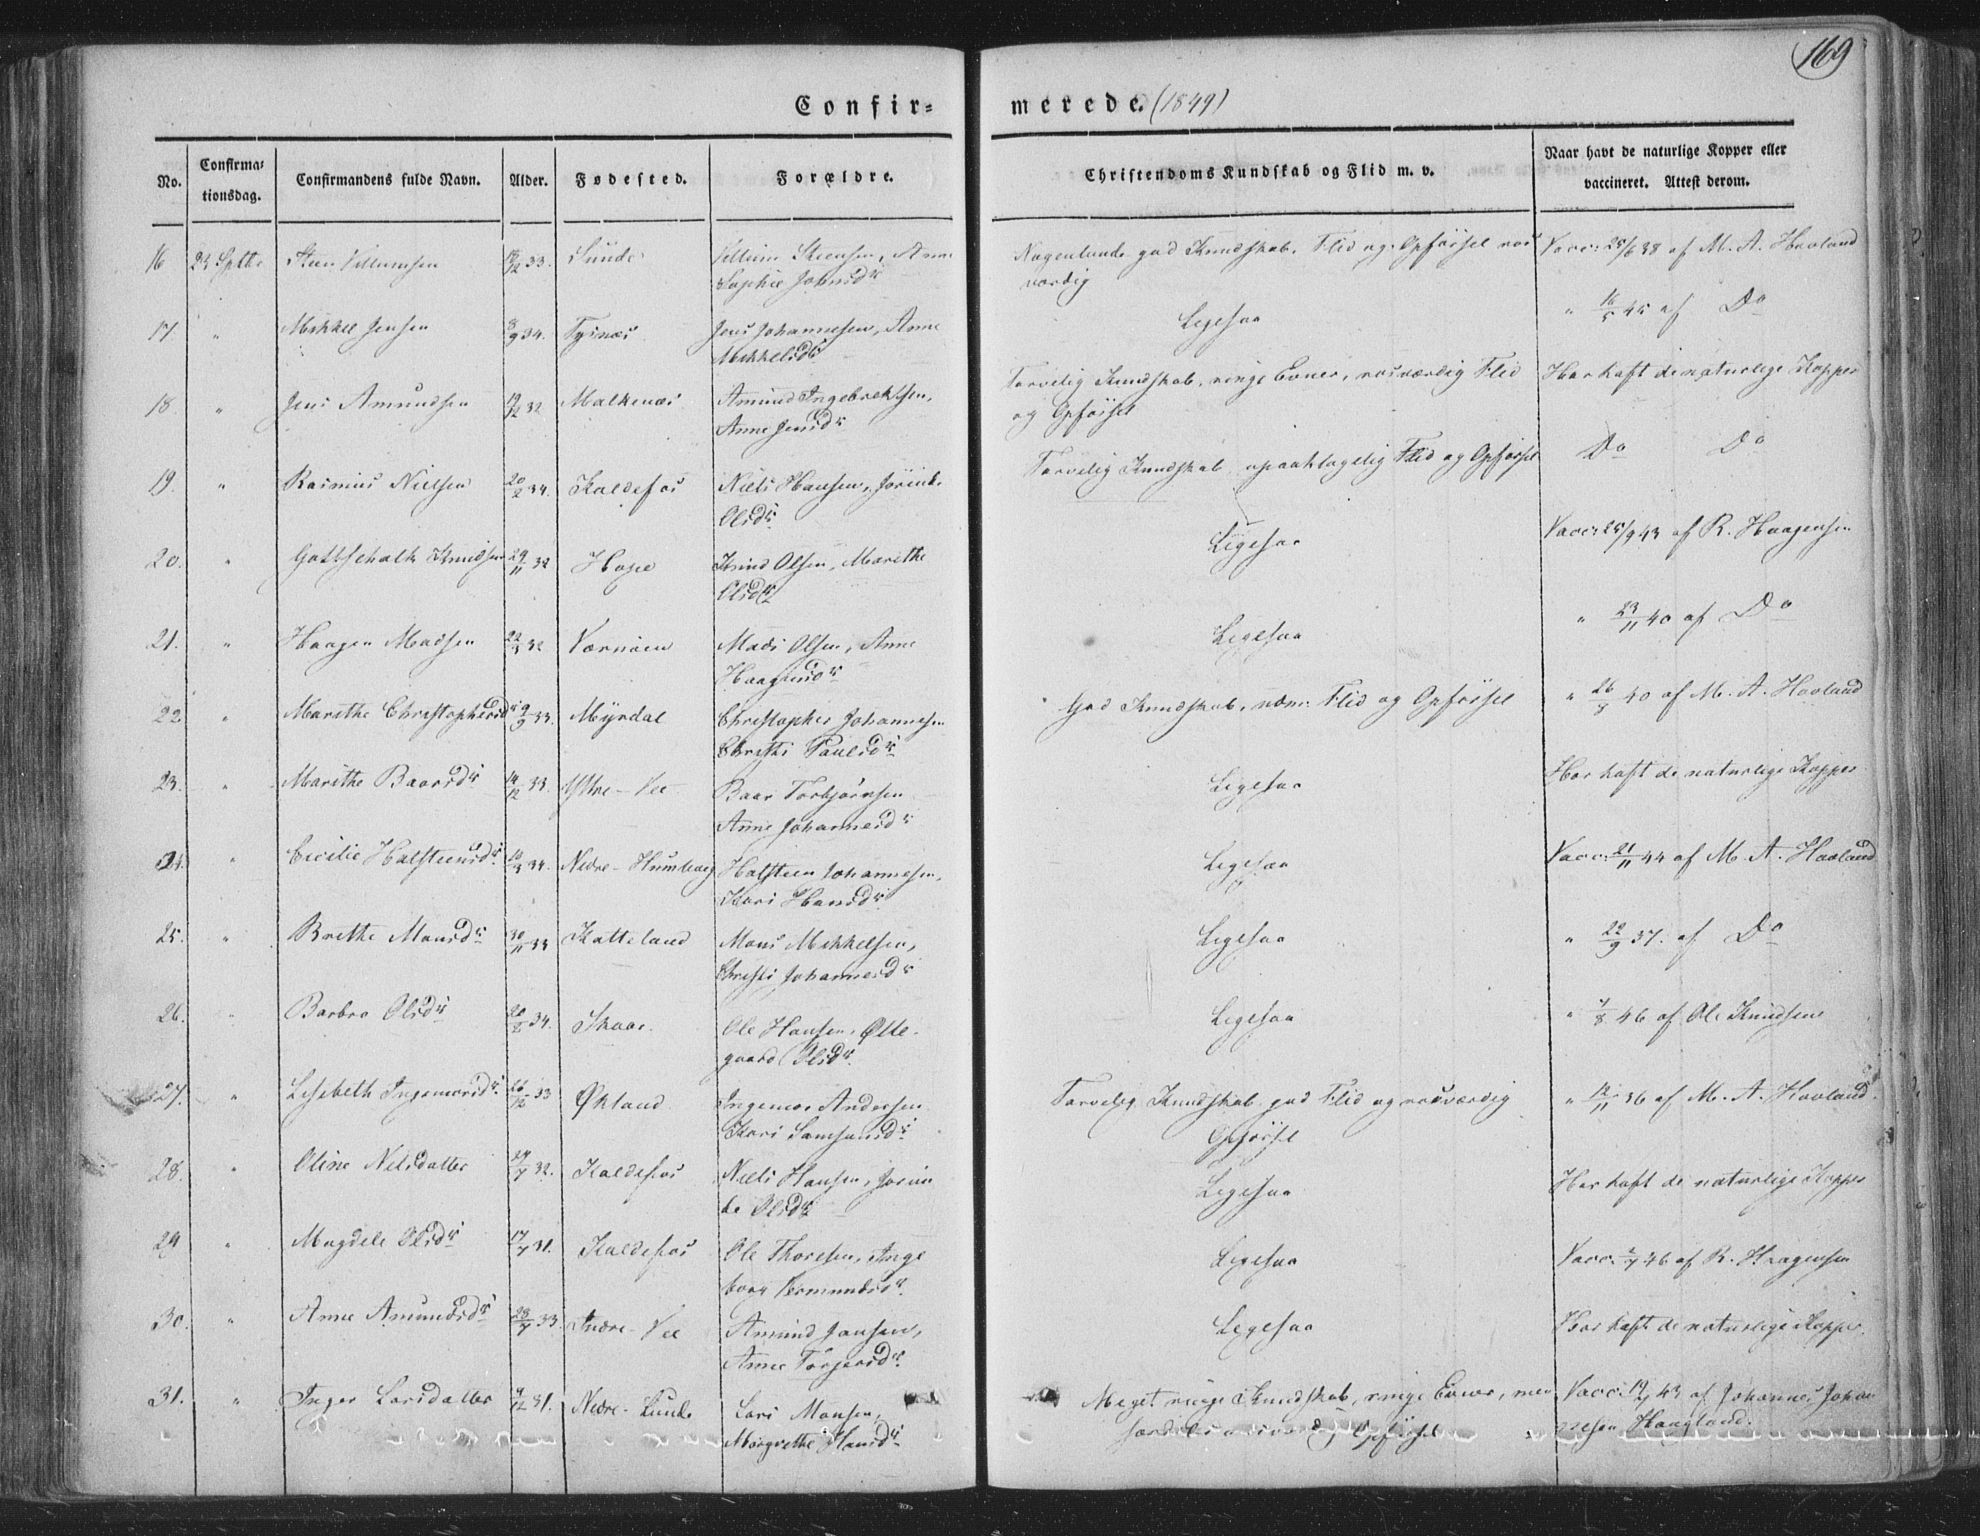 169
Confir-
merede. (1849)
No.
Confirma-
tionsdag.
Confirmandens fulde Navn.
Alder.
Fødested.
Forældre.
Christendoms Kundskab og Flid m. v.
Naar havt de naturlige Kopper eller
vaccineret. Attest derom.
16 Steen Villumsen 33. Sunde Villum Steensen, Anne
Sophie Johnsdr
Nogenlunde god Kundskab. Flid og Opførsel ros
værdig
Vacc: 25/6 38 af M. A. Havland
17. " Mikkel Jensen 8/9 34. Tysnæs Jens Johannesen, Anne
Mikkelsdr
Ligesaa
" 16/5 45 af Do
18. " Jens Amundsen 19/12 32 Malkenæs Amund Ingebrektsen,
Anne Jensdr
Tarvelig Kundskab, ringe Evner, rosværdig Flid
og Opførsel
Har haft de naturlige Kopper
19. " Rasmus Nielsen 20/2 34. Kaldefos Niels Hansen, Jorinde
Olsdr
Tarvelig Kundskab, upaaklagelig Flid og Opførsel
Do Do
20. " Gottschalk Knudsen 29/11 32 Hope Knud Olsen, Marithe
Olsdr
Ligesaa
Vacc: 25/9 43 af R. Haagensen
21. " Haagen Madsen 32 Værnøen Mads Olsen, Anne
Haagensdr
Ligesaa
" 23/11 40 af Do
22. " Marithe Christophersdr 9/9 33. Myrdal Christopher Johannesen
Christi Paulsdr
God Kundskab, Flid og Opførsel
" 26/8 40 af M. A. Havland
23. " Marithe Baarsdr 14/12 33. Ytre-Vee Baar Torbjørnsen
Anne Johannesdr
Ligesaa
Har haft de naturlige Kopper
24. " Cecilie Halsteensdr 34. Nedre-Humberg Halsteen Johannesen,
Kari Hansdr
Ligesaa
Vacc: 21/11 44 af M. A. Havland
25. " Brithe Monsdr 30/11 33 Katteland Mons Mikkelsen,
Christi Johannesdr
Ligesaa
" 22/9 37. af Do
26. " Barbro Olsdr 20/8 34. Skaar. Ole Hansen, Ølle-
gaard Olsdr
Ligesaa
" 46 af Ole Knudsen
27. " Lisebeth Ingemorsdr. 26/12 33 Økland Ingemor Andersen
Kari Samsonsdr
Tarvelig Kundskab, god Flid og rosværdig
Opførsel
" 12/11 36 af M. A. Havland.
28. " Oline Nilsdatter 32. Kaldefos Niels Hansen, Jorin
de Olsdr
Ligesaa
Har haft de naturlige Kopper
29 " Magdele Olsdr 17/7 31. Kaldefos Ole Thoresen, Inge
borg
Ligesaa
Vacc: 2/7 46 af R. Haagensen
30. " Anne Amundsdr 28/7 33. Indre-Vee Amund Jansen,
Anne Torgersdr.
Ligesaa
Har haft de naturlige Kopper.
31. " Inger Larsdatter 31. Nedre-Lunde Lars Monsen,
Margrethe Hansdr
Meget ringe Kundskab, ringe Evner, men
særdeles rosværdig Opførsel
Vacc: 43 af Johannes Johan
nesen Haagland.